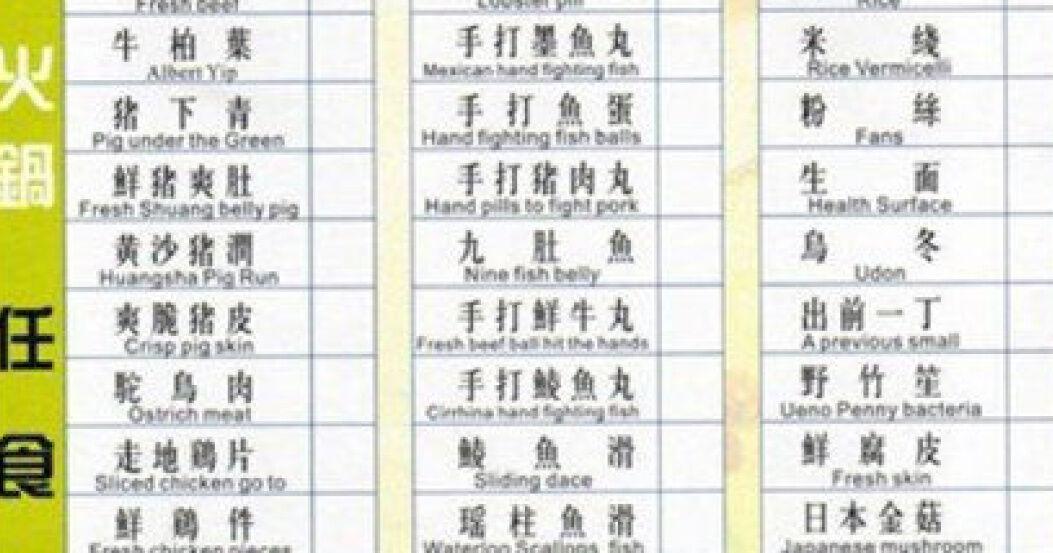 火鍋任食
Fresh beef
牛柏葉
Albert Yip
猪下青
Pig under the Green
鮮猪爽肚
Fresh Shuang belly pig
黃沙猪潤
Huangsha Pig Run
爽脆猪皮
Crisp pig skin
鴕鳥肉
Ostrich meat
走地鷄片
Sliced chicken go to
鮮鷄件
Fresh chicken pieces
Lobster pill
手打墨魚丸
Mexican hand fighting fish
手打魚蛋
Hand fighting fish balls
手打猪肉丸
Hand pills to fight pork
九肚魚
Nine fish belly
手打鮮牛丸
Fresh beef ball hit the hands
手打鯪魚丸
Cirrhina hand fighting fish
鯪魚滑
Sliding dace
瑶柱魚滑
Waterloo Scallops fish
Rice
米綫
Rice Vermicelli
粉絲
Fans
生面
Health Surface
烏冬
Udon
出前一丁
A previous small
野竹笙
Ueno Penny bacteria
鮮腐皮
Fresh skin
日本金菇
Japanese mushroom